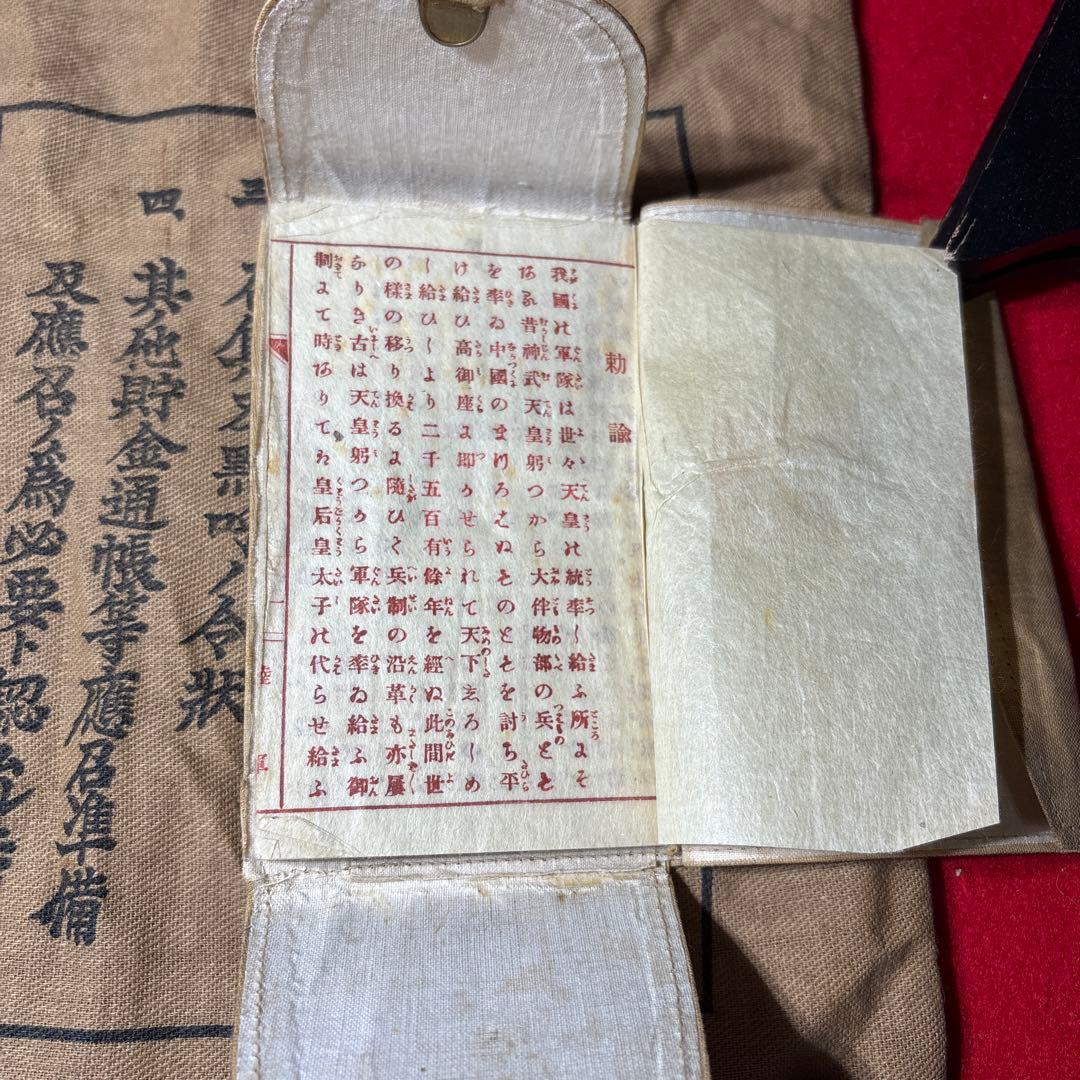 勅諭
我國の軍隊は世々天皇の統率し給ふ所にそ
ある昔神武天皇躬つから大伴物部の兵とも
を率ゐ中國のまつろはぬものともを討ち平
け給ひ高御座に即かせられて天下しろしめ
し給ひしより二千五百有餘年を經ぬ此間世
の様の移り換るに隨ひて兵制の沿革も亦屢
なりき古は天皇躬つから軍隊を率ゐ給ふ御
制にて時ありては皇后皇太子の代らせ給ふ
一 陸 軍
三、
四、其ノ他貯金通帳等應召准備
及應召ノ為必要ト認